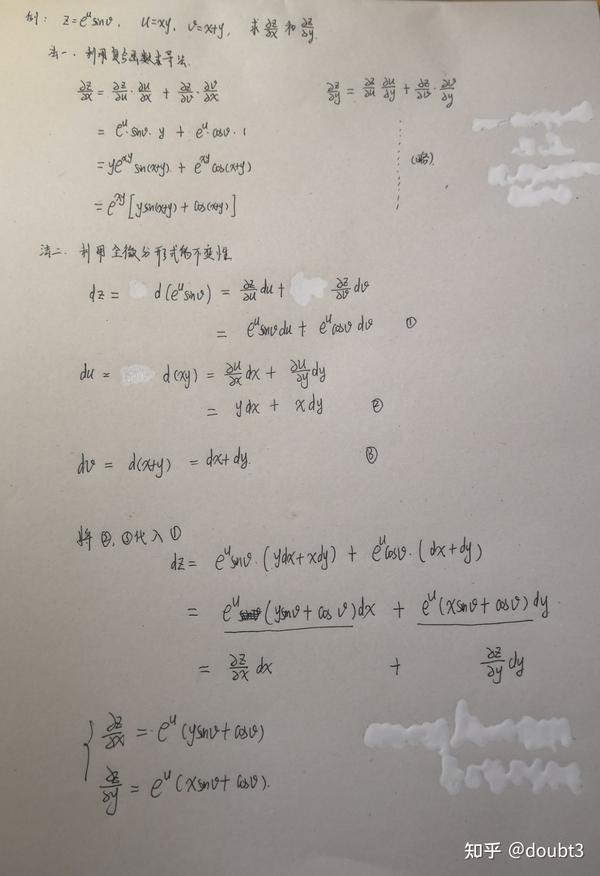 例: z=e^u sinv, u=xy, v=x+y, 求 ∂z/∂x 和 ∂z/∂y.
法一. 利用复合函数求导法.
∂z/∂x = ∂z/∂u · ∂u/∂x + ∂z/∂v · ∂v/∂x    ∂z/∂y = ∂z/∂u ∂u/∂y + ∂z/∂v · ∂v/∂y
= e^u · sinv · y + e^u · cosv · 1
= ye^xy sin(x+y) + e^xy cos(x+y)    (略)
= e^xy [ysin(x+y) + cos(x+y)]
法二. 利用全微分形式的不变性
dz = d(e^u sinv) = ∂z/∂u du + ∂z/∂v dv
= e^u sinv du + e^u cosv dv ①
du = d(xy) = ∂u/∂x dx + ∂u/∂y dy
= ydx + xdy ②
dv = d(x+y) = dx+dy. ③
将②,③代入①
dz = e^u sinv · (ydx+xdy) + e^u cosv · (dx+dy)
= e^u (ysinv + cosv)dx + e^u (xsinv + cosv)dy
= ∂z/∂x dx + ∂z/∂y dy
{ ∂z/∂x = e^u (ysinv + cosv)
∂z/∂y = e^u (xsinv + cosv).
知乎 @doubt3